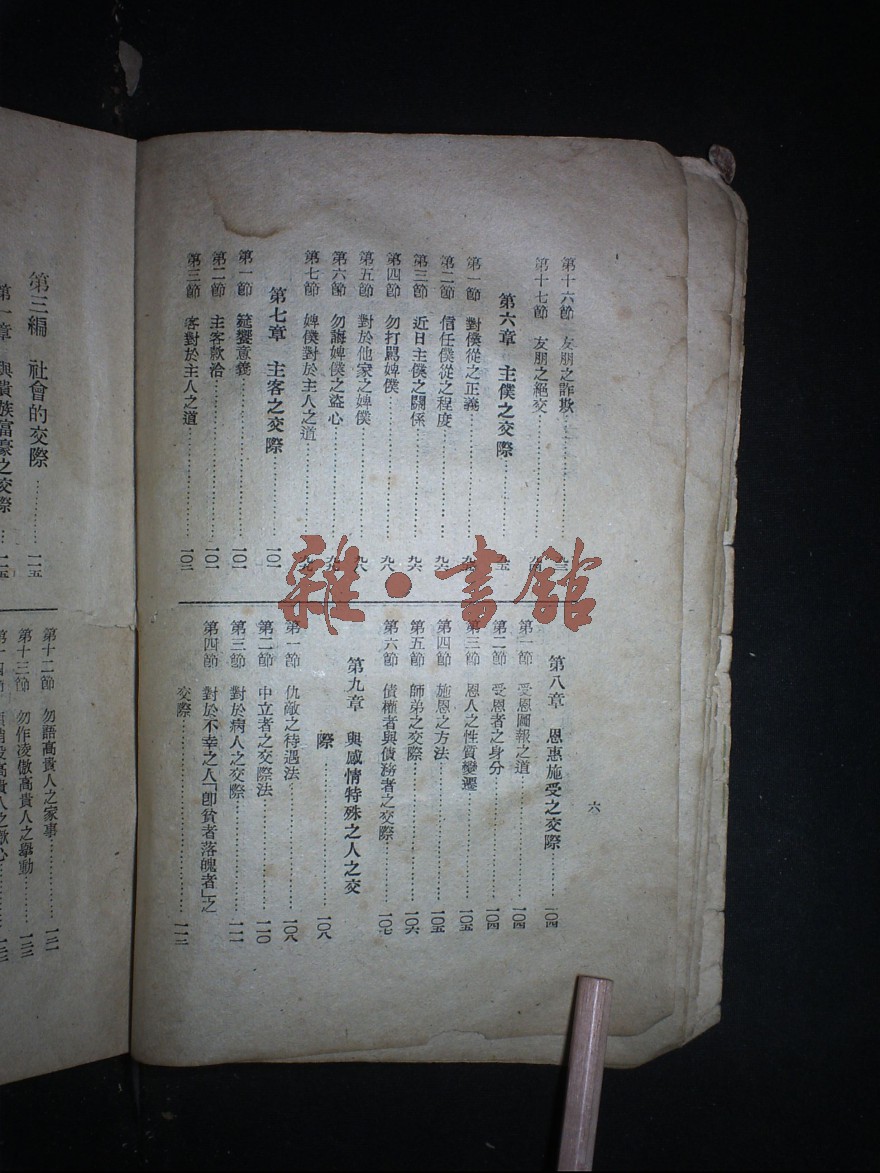 第十六節 友朋之詐欺
第十七節 友朋之絕交
第六章 主僕之交際
第一節 對僕從之正義
第二節 信任僕從之程度
第三節 近日主僕之關係
第四節 勿打罵婢僕 九八
第五節 對於他家之婢僕 九八
第六節 勿誨婢僕之盜心
第七節 婢僕對於主人之道
第七章 主客之交際 一〇一
第一節 筵饗意義 一〇一
第二節 主客款洽 一〇一
第三節 客對於主人之道 一〇二
六
第八章 恩惠施受之交際 一〇四
第一節 受恩圖報之道 一〇四
第二節 受恩者之身分 一〇四
第三節 恩人之性質變遷 一〇五
第四節 施恩之方法 一〇五
第五節 師弟之交際 一〇六
第六節 債權者與債務者之交際 一〇七
第九章 與感情特殊之人之交
際 一〇八
第一節 仇敵之待遇法 一〇八
第二節 中立者之交際法 一一〇
第三節 對於病人之交際 一一一
第四節 對於不幸之人「卽貧者落魄者」之
交際 一一二
第三編 社會的交際 一一五
第一章 與貴族富豪之交際 一一五
第十二節 勿語高貴人之家事 一二一
第十三節 勿作凌傲高貴人之舉動 一二二
雜·書館